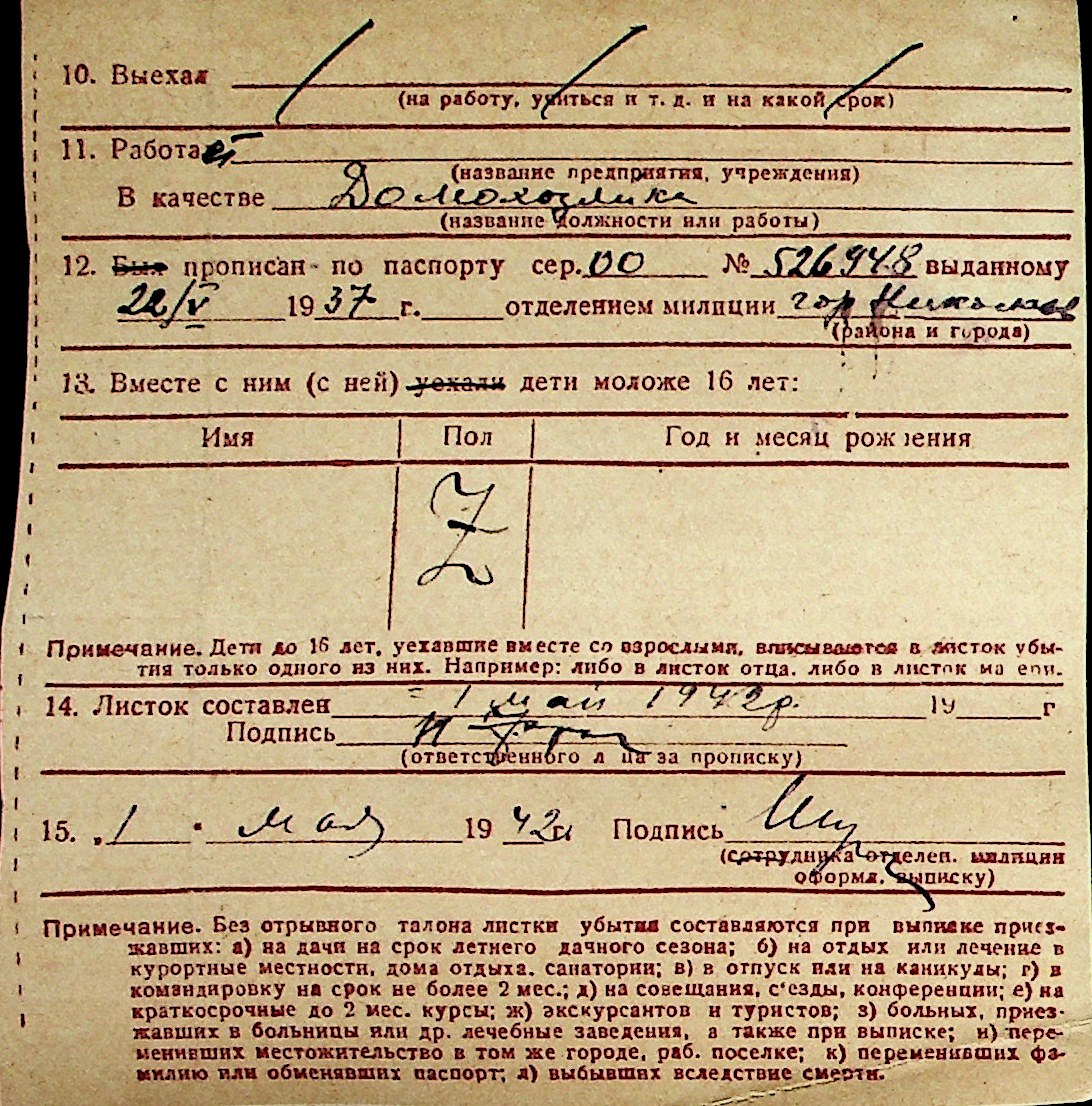 10. Выехал
(на работу, учиться и т. д. и на какой срок)
11. Работает
(название предприятия, учреждения)
В качестве Домохозяйка
(название должности или работы)
12. Был прописан по паспорту сер. ОО № 526948 выданному
22/V 1937 г. отделением милиции гор Николаев
(района и города)
13. Вместе с ним (с ней) уехали дети моложе 16 лет:
Имя Пол Год и месяц рождения
Z
Примечание. Дети до 16 лет, уехавшие вместе со взрослыми, вписываются в листок убы-
тия только одного из них. Например: либо в листок отца, либо в листок матери.
14. Листок составлен 1 май 1942г. 19 г
Подпись
(ответственного лица за прописку)
15. „1" мая 1942г. Подпись
(сотрудника отделен. милиции
оформл. выписку)
Примечание. Без отрывного талона листки убытия составляются при выписке приез-
жавших: а) на дачи на срок летнего дачного сезона; б) на отдых или лечение в
курортные местности, дома отдыха, санатории; в) в отпуск или на каникулы; г) в
командировку на срок не более 2 мес.; д) на совещания, с'езды, конференции; е) на
краткосрочные до 2 мес. курсы; ж) экскурсантов и туристов; з) больных, приез-
жавших в больницы или др. лечебные заведения, а также при выписке; и) пере-
менивших местожительство в том же городе, раб. поселке; к) переменивших фа-
милию или обменявших паспорт; л) выбывших вследствие смерти.